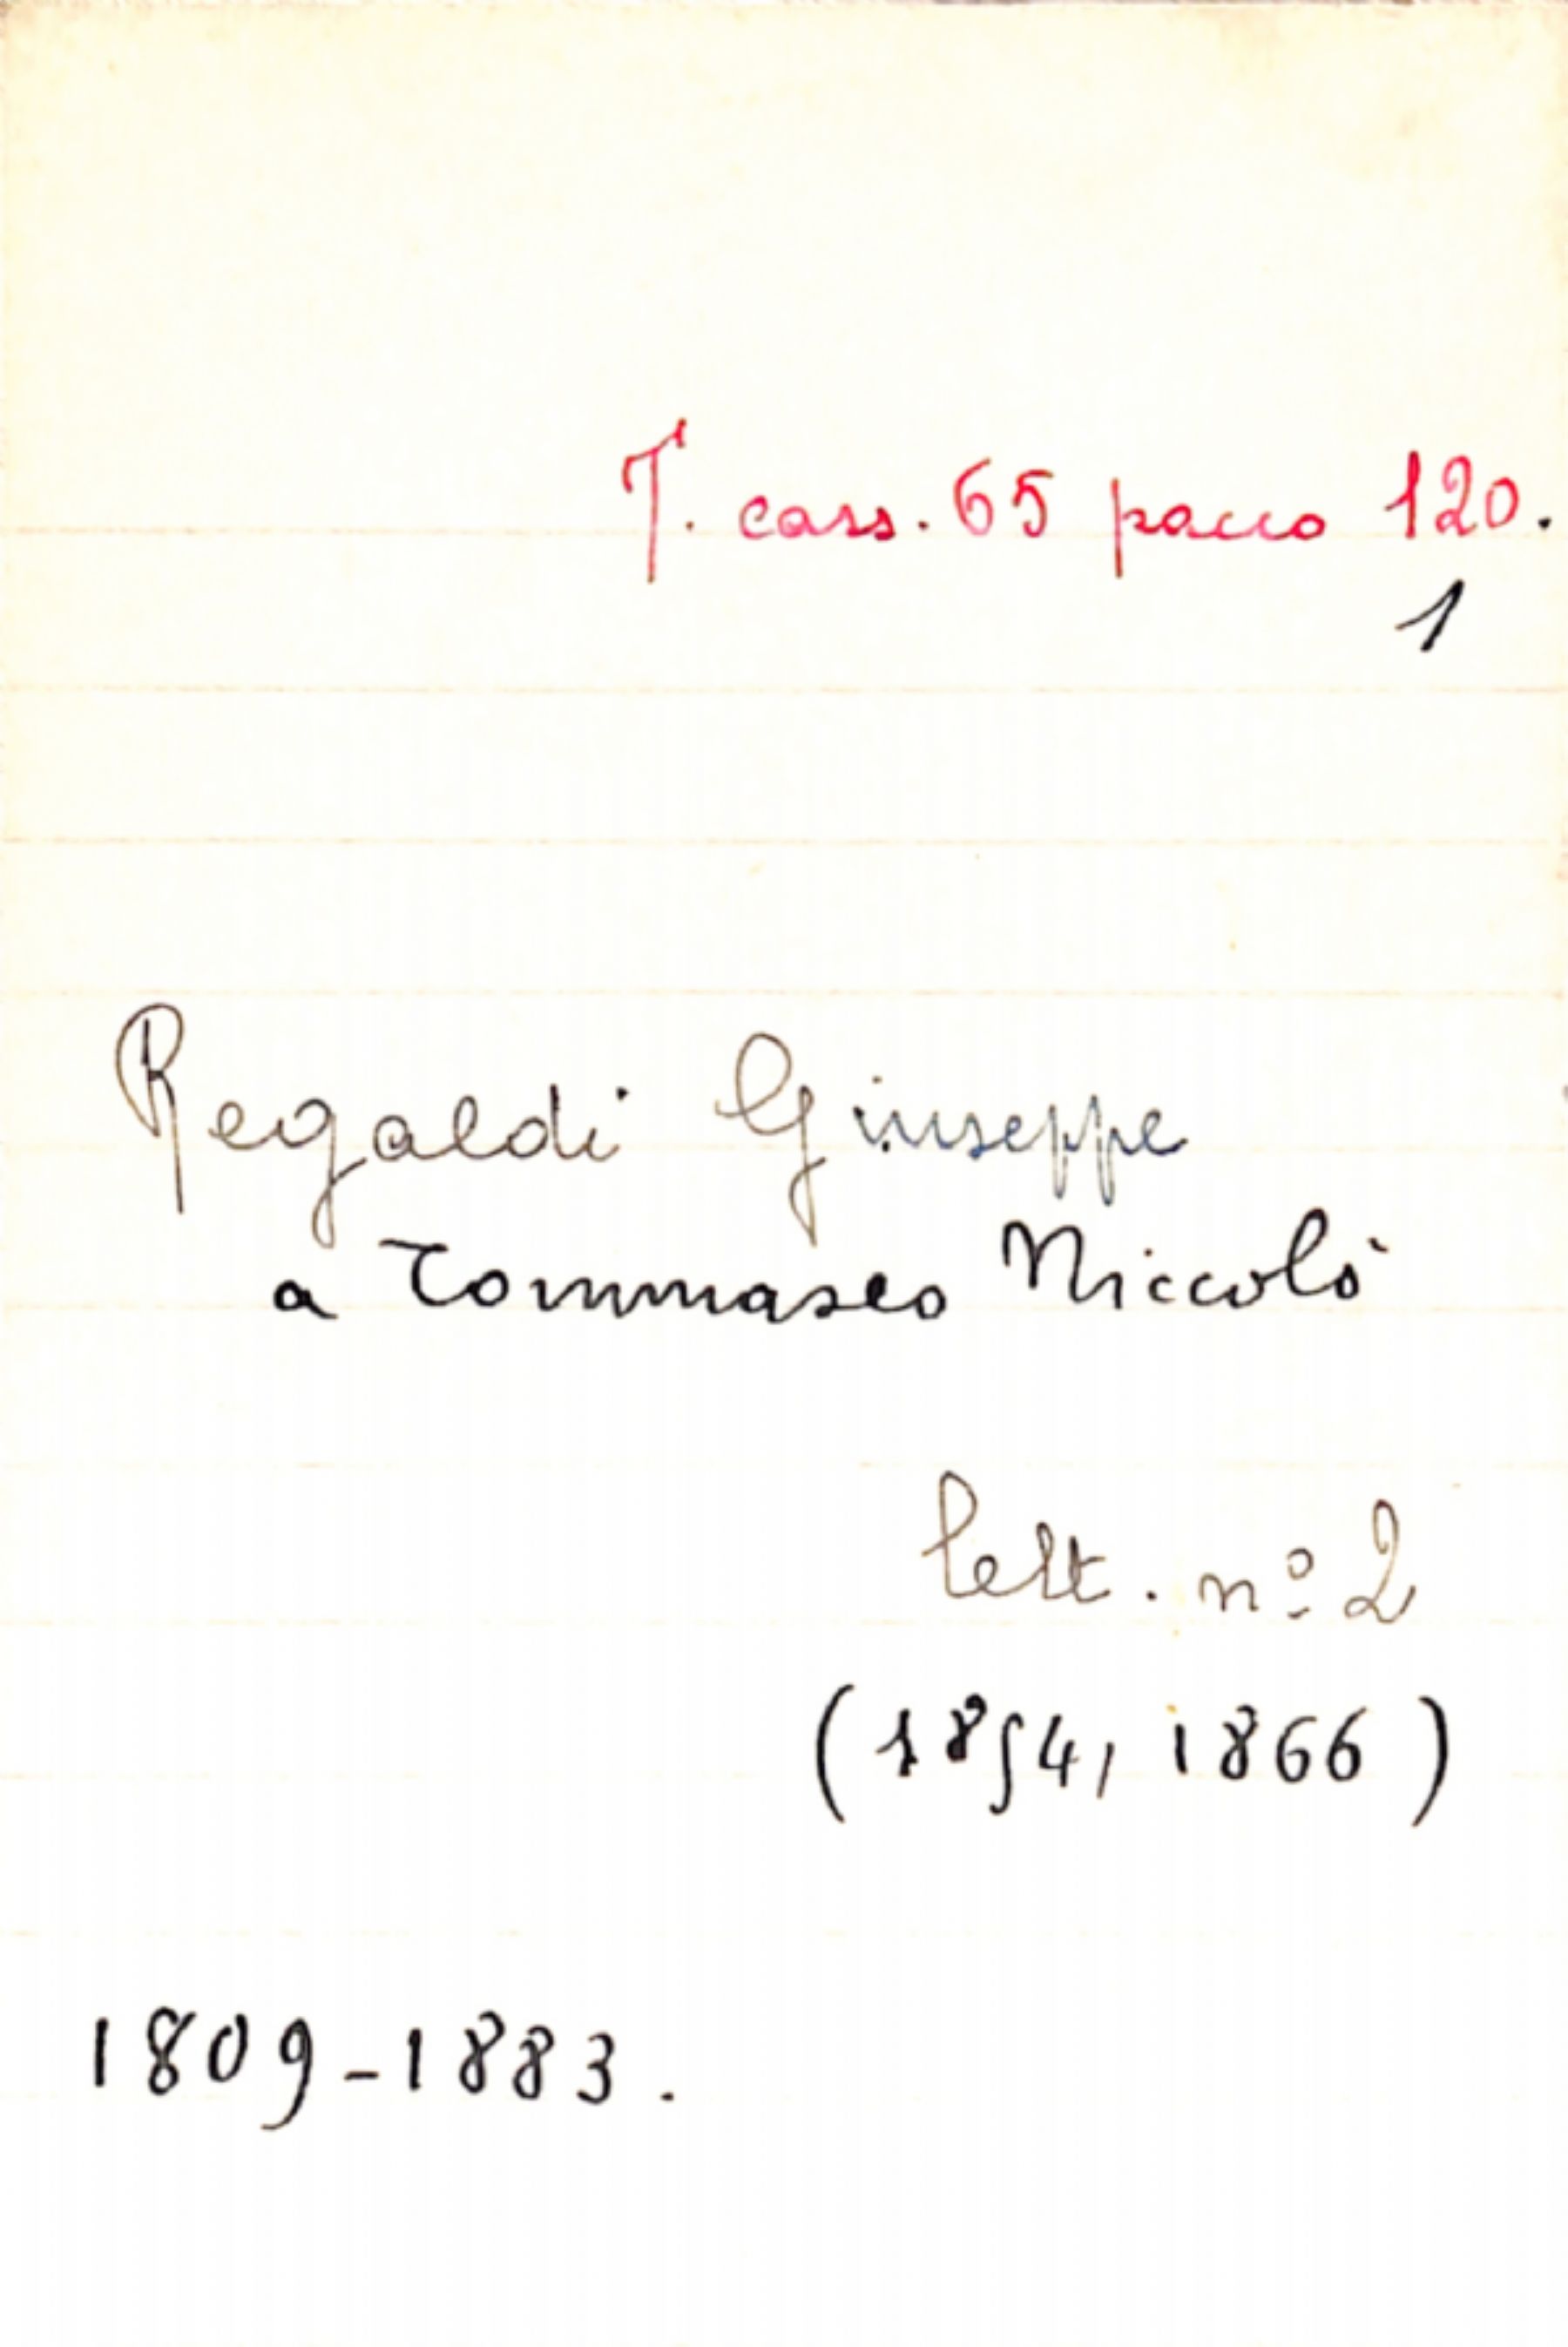 T. cass. 65 pacco 120.
1
Regaldi Giuseppe
a Tommaseo Niccolò
lett. nº 2
(1854, 1866)
1809-1883.